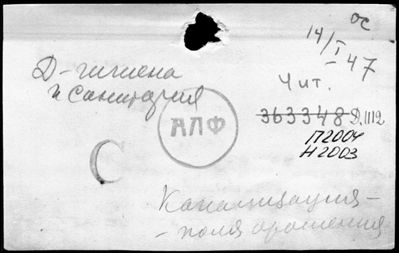 ос
14/I-47
Д-гигиена
и санитария
Чит.
АПФ
363348 Д.1112
П2004
Н2003
С
Канализация -
- поля орошения